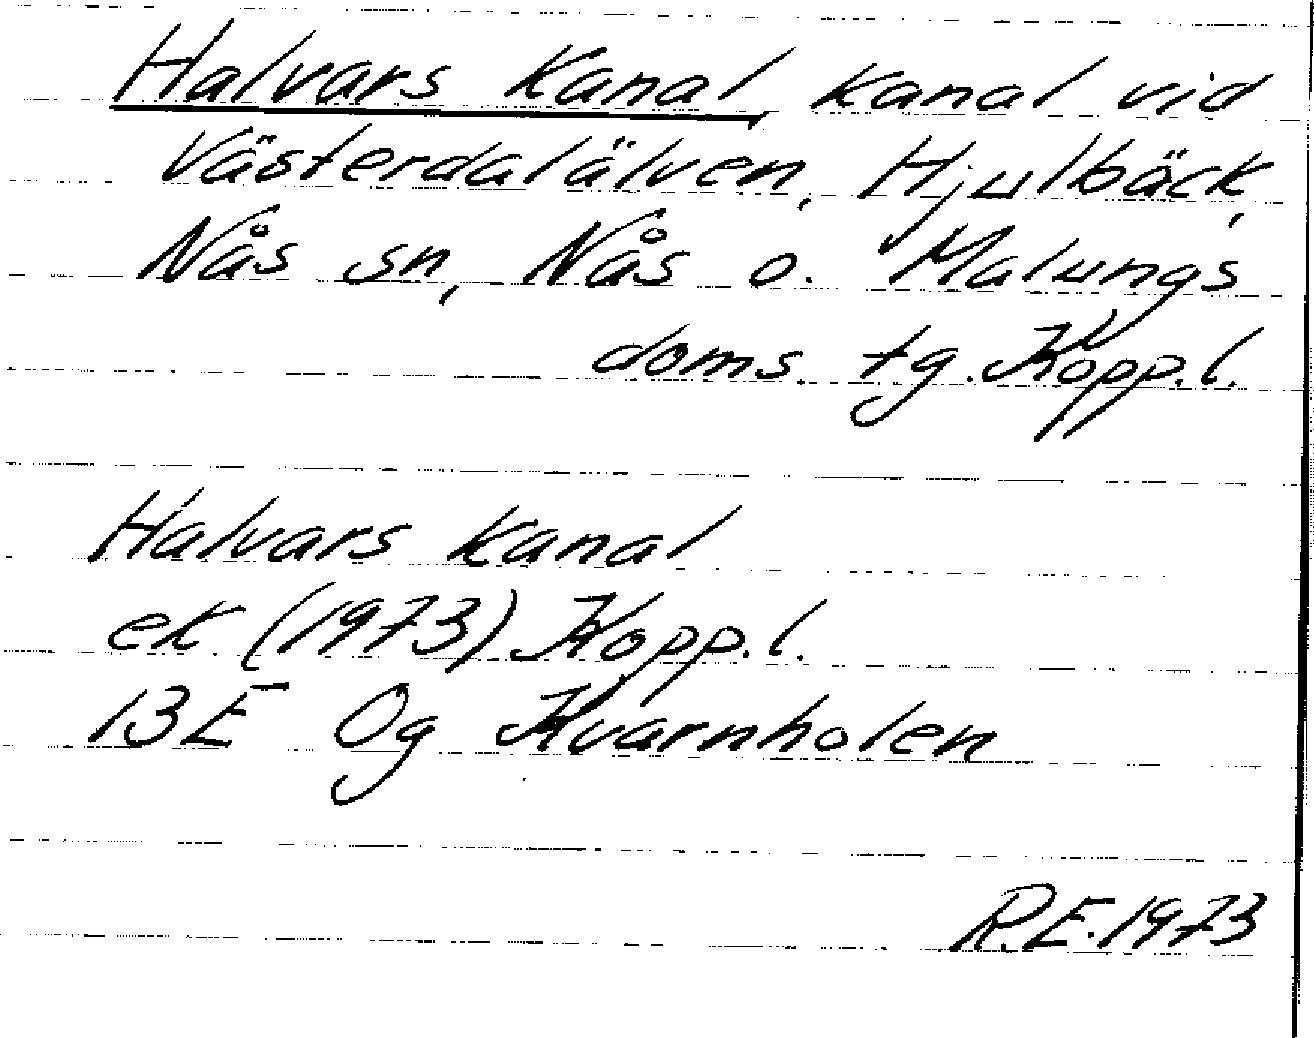 Halvars Kanal, kanal vid
Västerdalälven, Hjulbäck,
Nås sn, Nås o. Malungs
doms. tg. Kopp.l.
Halvars kanal
ek (1973) Kopp.l.
13E 0g Kvarnholen
R.E. 1973